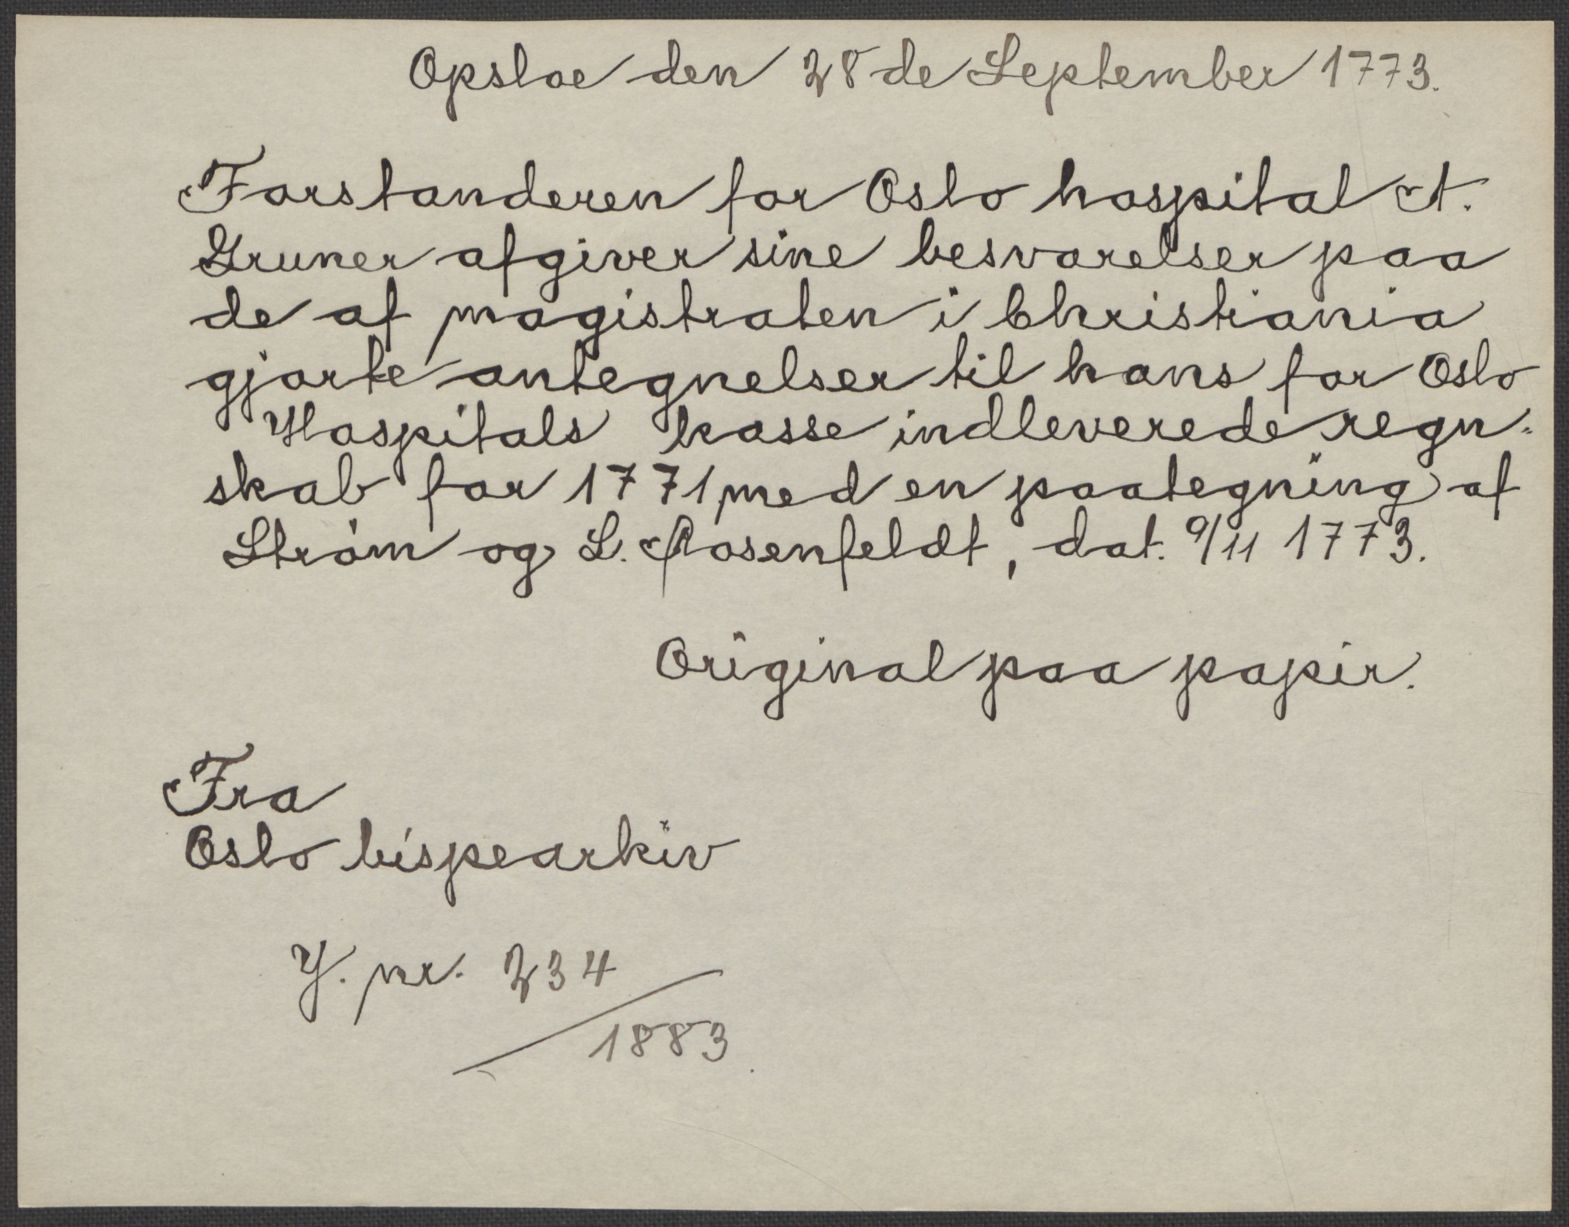 Opsloe den 28de September 1773.
Forstanderen for Oslo hospital A.
Gruner afgiver sine besvarelser paa
de af magistraten i Christiania
gjorte antegnelser til hans for Oslo
Hospitals kasse indleverede regn-
skab for 1771 med en paategning af
Strøm og L. Rosenfeldt, dat. 9/11 1773.
Original paa papir.
Fra
Oslo bispearkiv
J. nr. 234
/1883